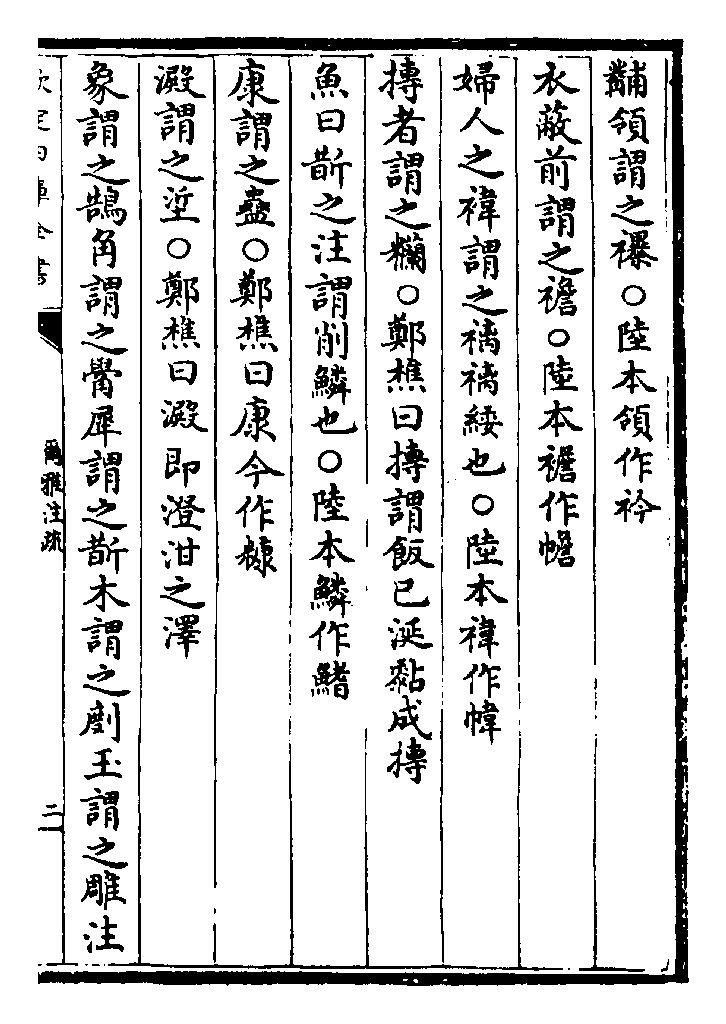 黼領謂之襮○陸本領作衿
衣蔽前謂之襜○陸本襜作幨
婦人之褘謂之褵褵緌也○陸本褘作幃
摶者謂之糷○鄭樵曰摶謂飯已涎黏成摶
魚曰斮之注謂削鱗也○陸本鱗作鰭
康謂之蠱○鄭樵曰康今作糠
澱謂之垽○鄭樵曰澱即澄泔之滓
象謂之鵠角謂之觷犀謂之斮木謂之劇玉謂之雕注
欽定四庫全書
爾雅注疏
二